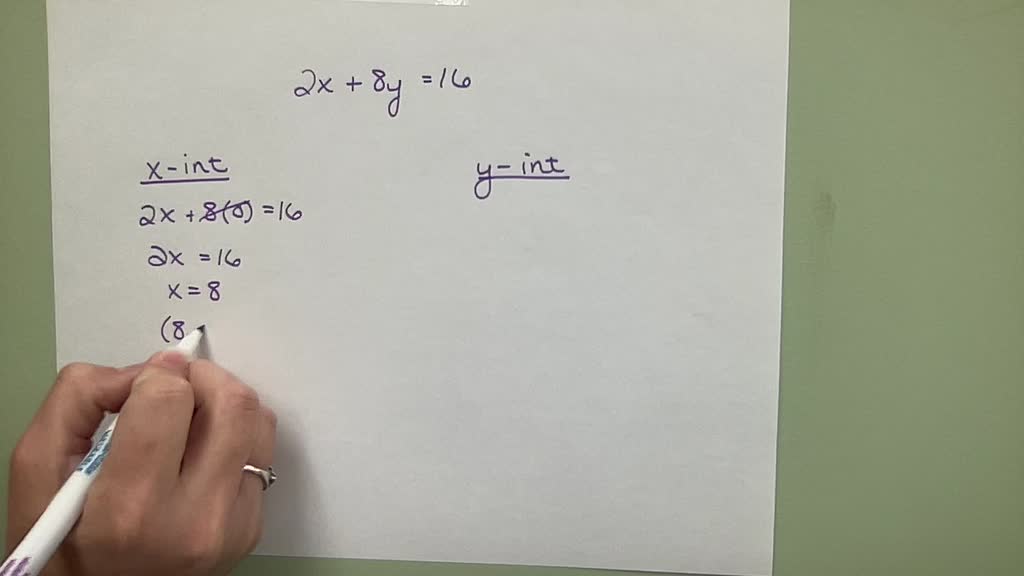 2x + 8y = 16
x-int
2x + 8(0) = 16
2x = 16
x = 8
(8
y-int